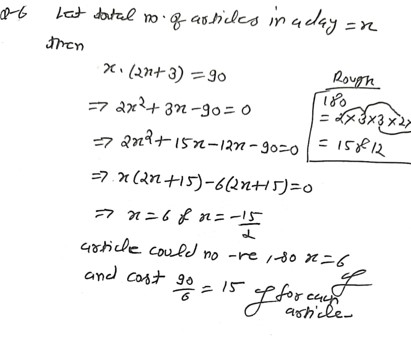 Q-6 Let total no. of articles in a day = x
then
x.(2x+3) = 90
⇒ 2x²+3x-90=0
⇒ 2x²+15x-12x-90=0
⇒ x(2x+15)-6(2x+15)=0
⇒ x=6 & x=-15/2
article could no -ve, so x=6
and cost 90/6 = 15 for each
article
Rough
180
= 2×3×3×2×
= 15 & 12